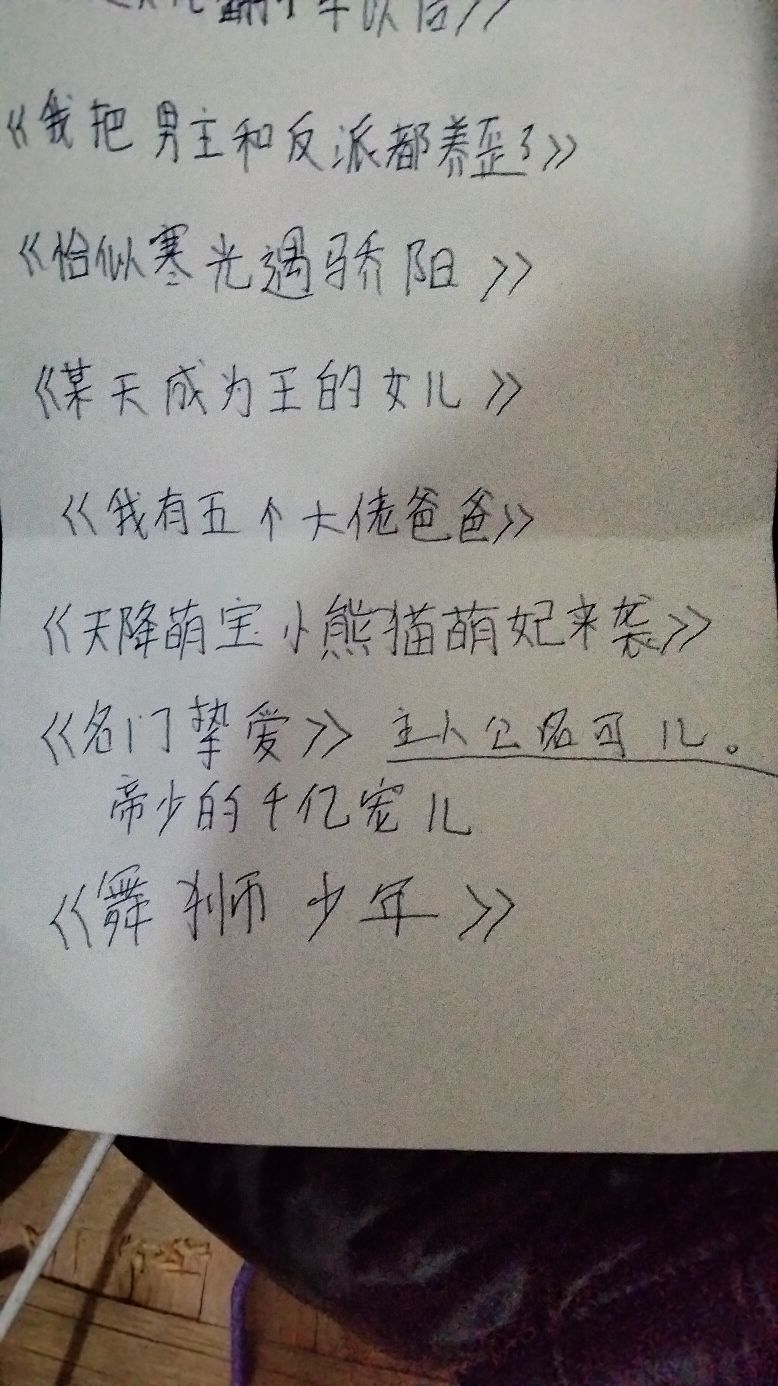 年以后》
《我把男主和反派都养歪了》
《恰似寒光遇骄阳》
《某天成为王的女儿》
《我有五个大佬爸爸》
《天降萌宝小熊猫萌妃来袭》
《名门挚爱》主人公名可儿。
帝少的千亿宠儿
《舞狮少年》